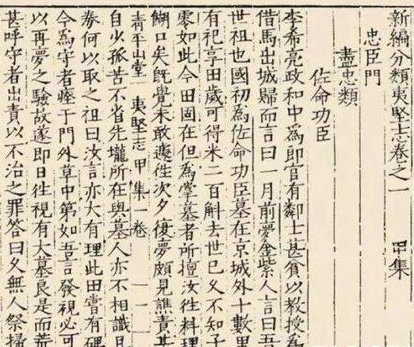 新編分類夷堅志卷之一 甲集
忠臣門
盡忠類
佐命功臣
李希亮政和中為郎官有鄰士甚貧以教授為
借馬出城歸而言曰一月前夢金紫人言曰吾
世祖也國初為佐命功臣墓在京城外十數里
有祀享田歲可得米二百斛去世已久不知子
零如此今田固在但為掌墓者所擅汝往料理
餬口矣既覺未敢遽往次夕復夢頗見譙責其
清平山堂 夷堅志 甲集一卷 一
自少孤苦不省先壠所在與墓人亦不相識且
券何以取之祖曰汝言亦大有理此田嘗有碑
今為守者瘞于門外草中第如吾言發視必可
以再夢之驗故遂即日往視有大墓良是而荒
甚呼守者出責以不治之罪答曰久無人祭掃